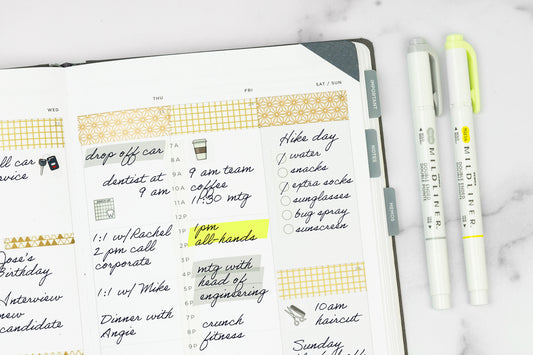 WED
THU
FRI
SAT / SUN
all car
service
Jose's
Birthday
Interview
new
candidate
drop off car
dentist at
9 am
1:1 w/ Rachel
2 pm call
corporate
1:1 w/ Mike
Dinner with
Angie
7A
8A
9A
10A
11A
12P
1P
2P
3P
4P
5P
6P
7P
8P
9 am team
coffee
11:30 mtg
1pm
all-hands
mtg with
head of
engineering
crunch
fitness
Hike day
water
snacks
extra socks
sunglasses
bug spray
sunscreen
10am
haircut
Sunday
IMPORTANT
NOTES
PERIODS
MILDLINER
DOUBLE ENDED
MILDLINER
DOUBLE ENDED